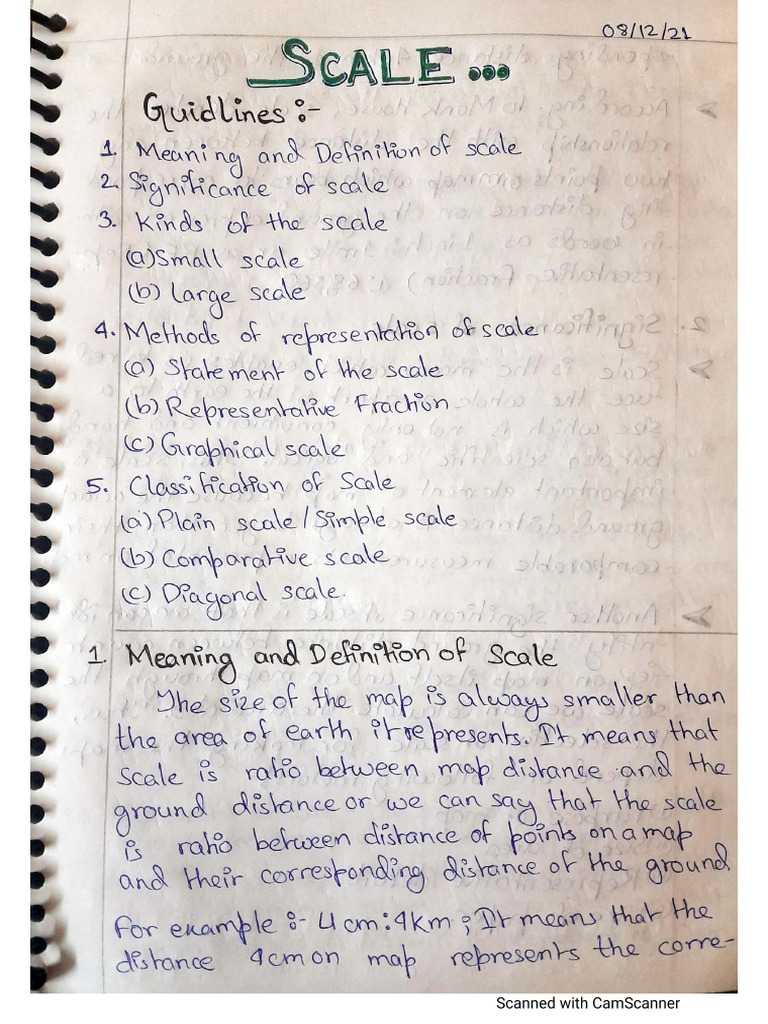 08/12/21
SCALE...
Guidlines :-
1. Meaning and Definition of scale
2. Significance of scale
3. Kinds of the scale
(a) Small scale
(b) large scale
4. Methods of representation of scale
(a) Statement of the scale
(b) Representative Fraction
(c) Graphical scale
5. Classification of Scale
(a) Plain scale / Simple scale
(b) Comparative scale
(c) Diagonal scale.
1. Meaning and Definition of Scale
The size of the map is always smaller than
the area of earth it represents. It means that
scale is ratio between map distance and the
ground distance or we can say that the scale
is ratio between distance of points on a map
and their corresponding distance of the ground
For example :- 4cm : 4km ; It means that the
distance 4cm on map represents the corre-
Scanned with CamScanner